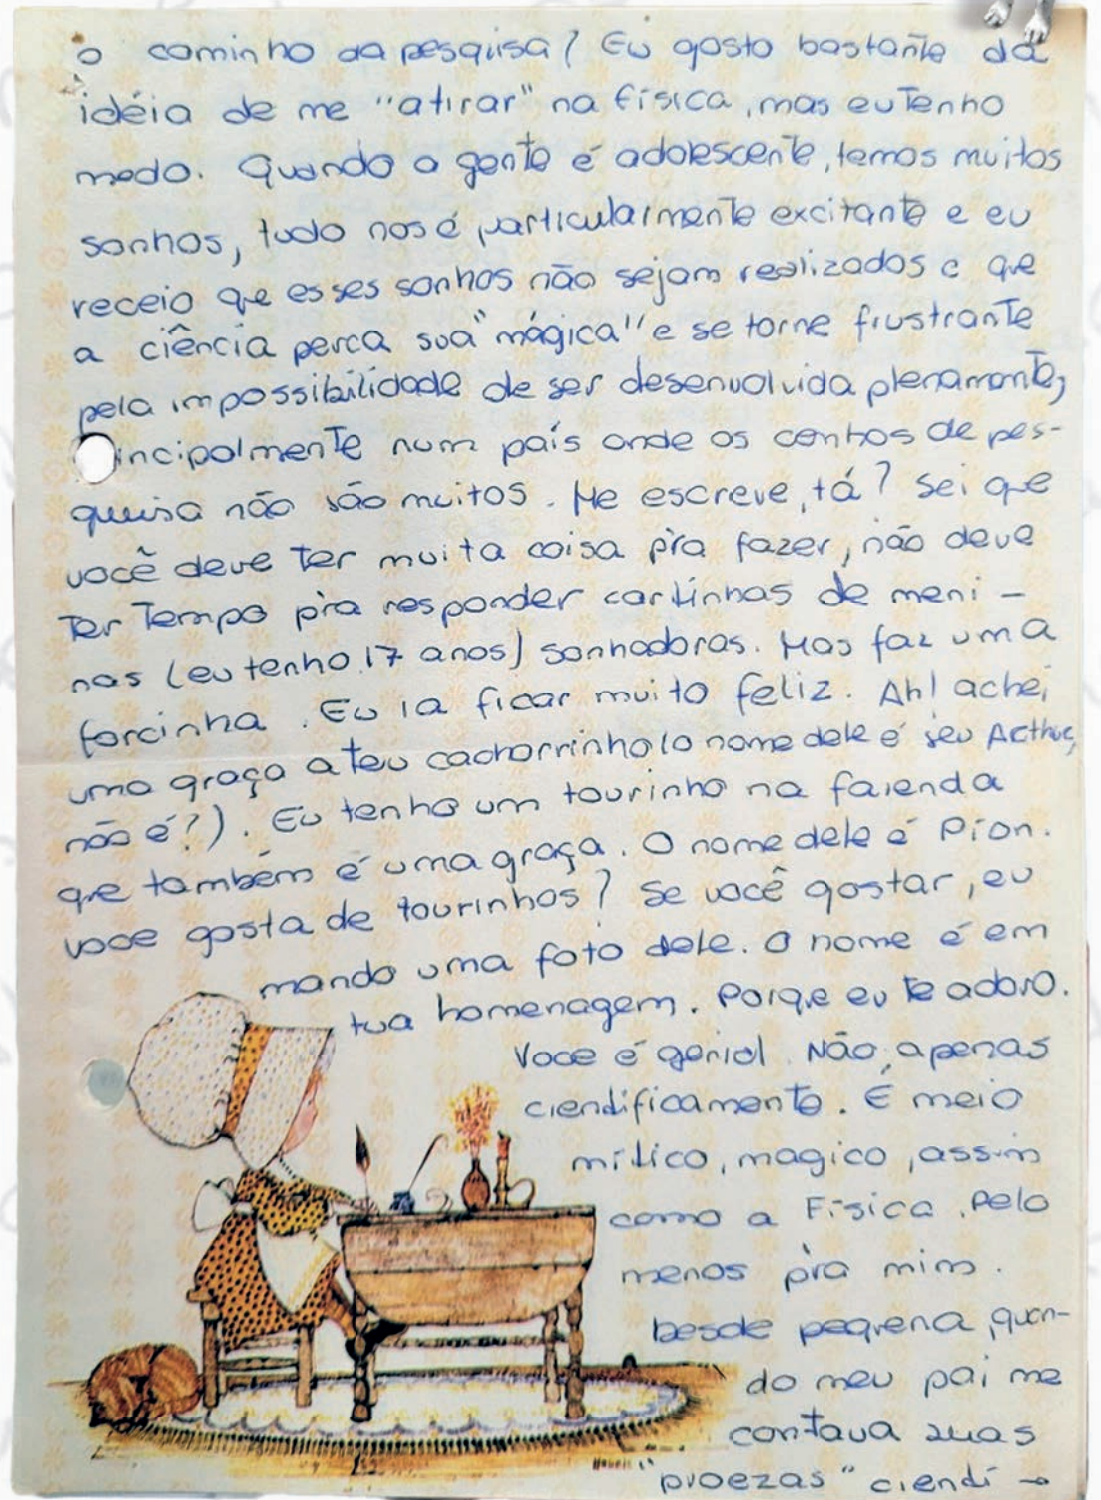 o caminho da pesquisa? Eu gosto bastante da
idéia de me "atirar" na física, mas eu tenho
medo. Quando a gente é adolescente, temos muitos
sonhos, tudo nos é particularmente excitante e eu
receio que esses sonhos não sejam realizados e que
a ciência perca sua "mágica" e se torne frustrante
pela impossibilidade de ser desenvolvida plenamente,
incipalmente num país onde os centros de pes-
quisa não são muitos. Me escreve, tá? Sei que
você deve ter muita coisa pra fazer, não deve
ter tempo pra responder cartinhas de meni-
nas (eu tenho 17 anos) sonhadoras. Mas faz uma
forcinha. Eu ia ficar muito feliz. Ah! achei
uma graça o teu cachorrinho (o nome dele é seu Arthur,
não é?). Eu tenho um tourinho na fazenda
que também é uma graça. O nome dele é Píon.
voce gosta de tourinhos? Se você gostar, eu
mando uma foto dele. O nome é em
tua homenagem. Porque eu te adoro.
Voce é genial. Não, apenas
cientificamente. É meio
mítico, magico, assim
como a Física. Pelo
menos pra mim.
Desde pequena, quan-
do meu pai me
contava suas
"proezas" cientí →